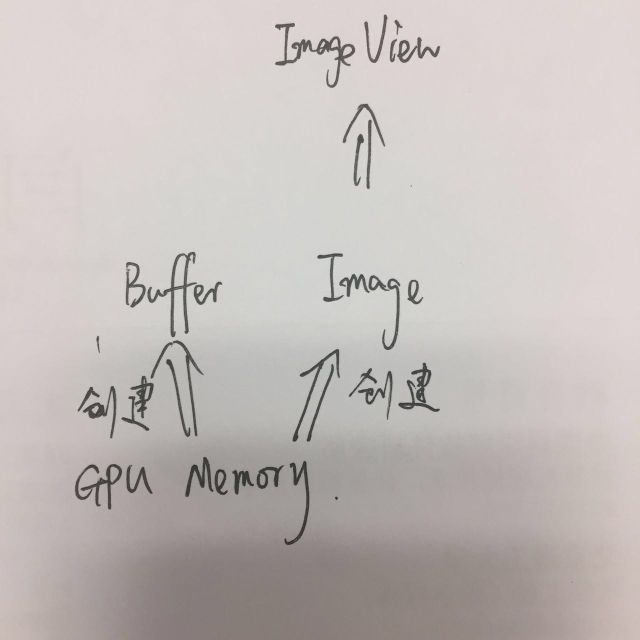 Image View
Buffer
Image
创建
创建
GPU Memory.